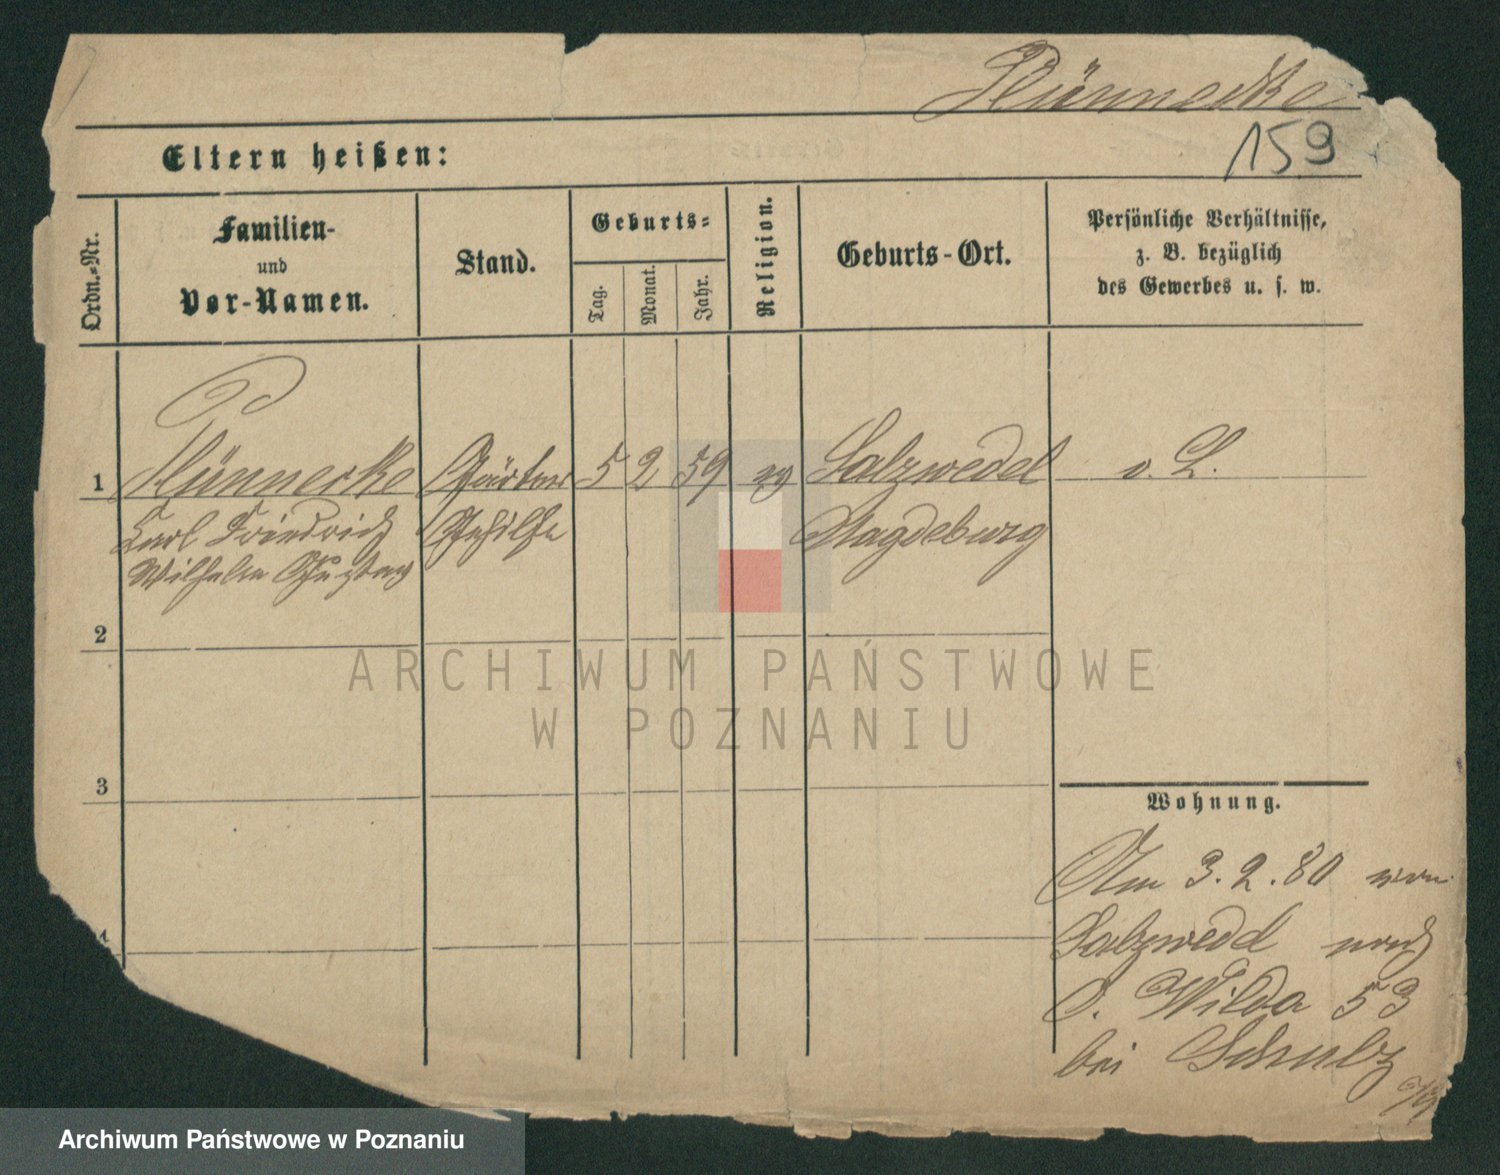 Münnecke
159
Eltern heißen:
Ordn.=Nr.
Familien-
und
Vor-Namen.
Stand.
Geburts=
Tag.
Monat.
Jahr.
Religion.
Geburts-Ort.
Persönliche Verhältnisse,
z. B. bezüglich
des Gewerbes u. s. w.
1 Münnecke Gärtner 5 2 59 eg Salzwedel v. L.
Carl Friedrich Gehilfe Magdeburg
Wilhelm Gustav
2
3
4
Wohnung.
Am 3.2.80 von
Salzwedel nach
O. Wilda 53
bei Schulz
ARCHIWUM PAŃSTWOWE
W POZNANIU
Archiwum Państwowe w Poznaniu